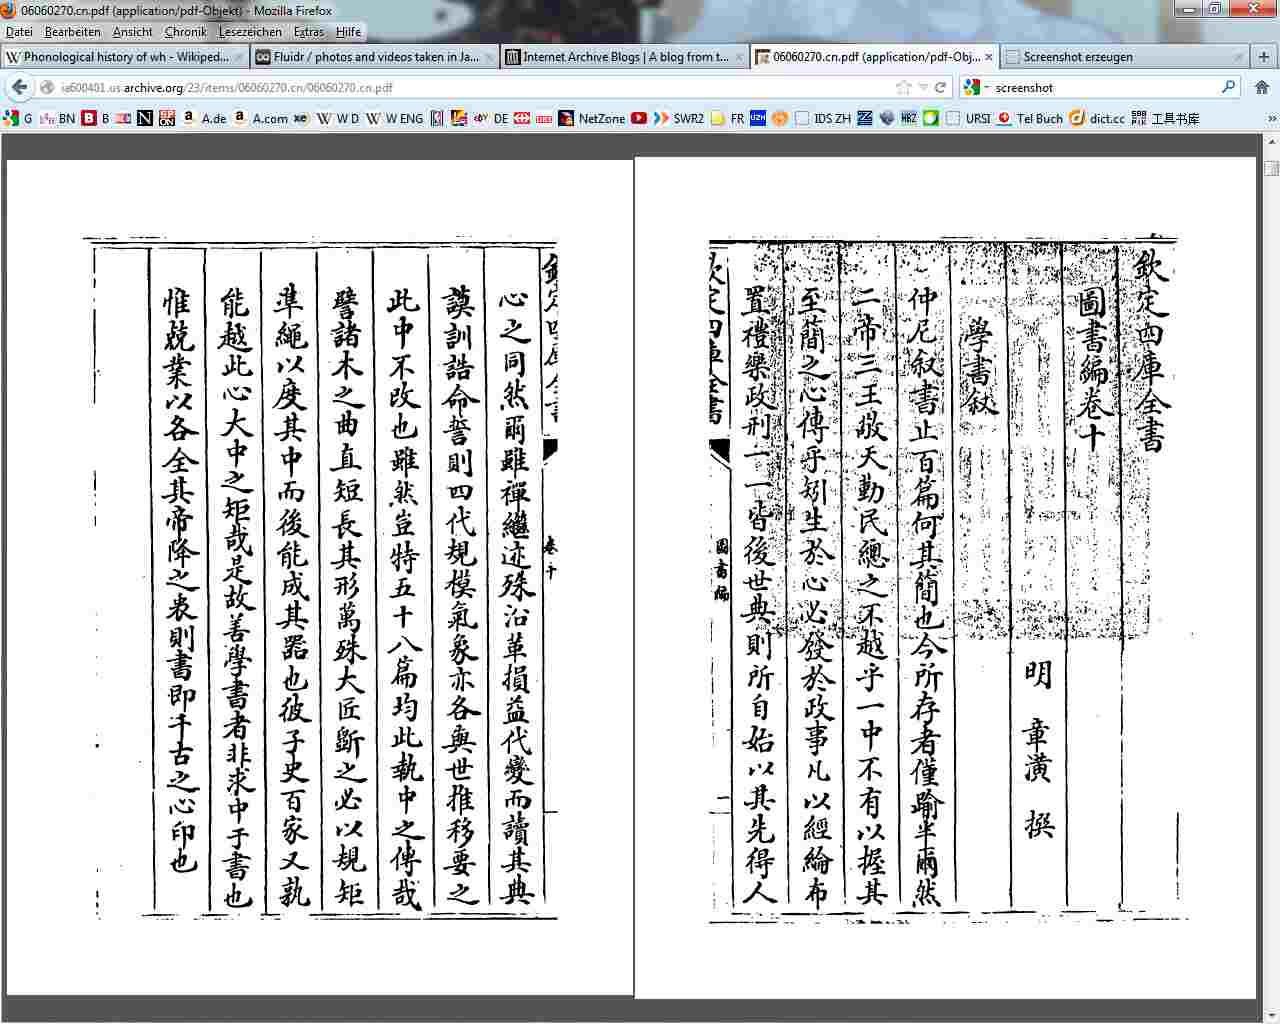 06060270.cn.pdf (application/pdf-Objekt) - Mozilla Firefox
Datei Bearbeiten Ansicht Chronik Lesezeichen Extras Hilfe
Phonological history of wh - Wikiped...
Fluidr / photos and videos taken in Ja...
Internet Archive Blogs | A blog from t...
06060270.cn.pdf (application/pdf-Obj...
Screenshot erzeugen
ia600401.us.archive.org/23/items/06060270.cn/06060270.cn.pdf
screenshot
G BN B A.de A.com W D W ENG DE NetZone SWR2 FR UZH IDS ZH WBZ URSI Tel Buch dict.cc 工具书库
欽定四庫全書
圖書編卷十
明 章潢 撰
學書敘
仲尼叙書止百篇何其簡也今所存者僅踰半爾然
二帝三王敬天勤民總之不越乎一中不有以握其
至簡之心傳乎矧生於心必發於政事凡以經綸布
置禮樂政刑一一皆後世典則所自始以其先得人
欽定四庫全書
圖書編
一
卷十
心之同然爾雖禪繼迹殊沿革損益代變而讀其典
謨訓誥命誓則四代規模氣象亦各與世推移要之
此中不改也雖然豈特五十八篇均此執中之傳哉
譬諸木之曲直短長其形萬殊大匠斵之必以規矩
準繩以度其中而後能成其器也彼子史百家又孰
能越此心大中之矩哉是故善學書者非求中于書也
惟兢業以各全其帝降之衷則書即千古之心印也